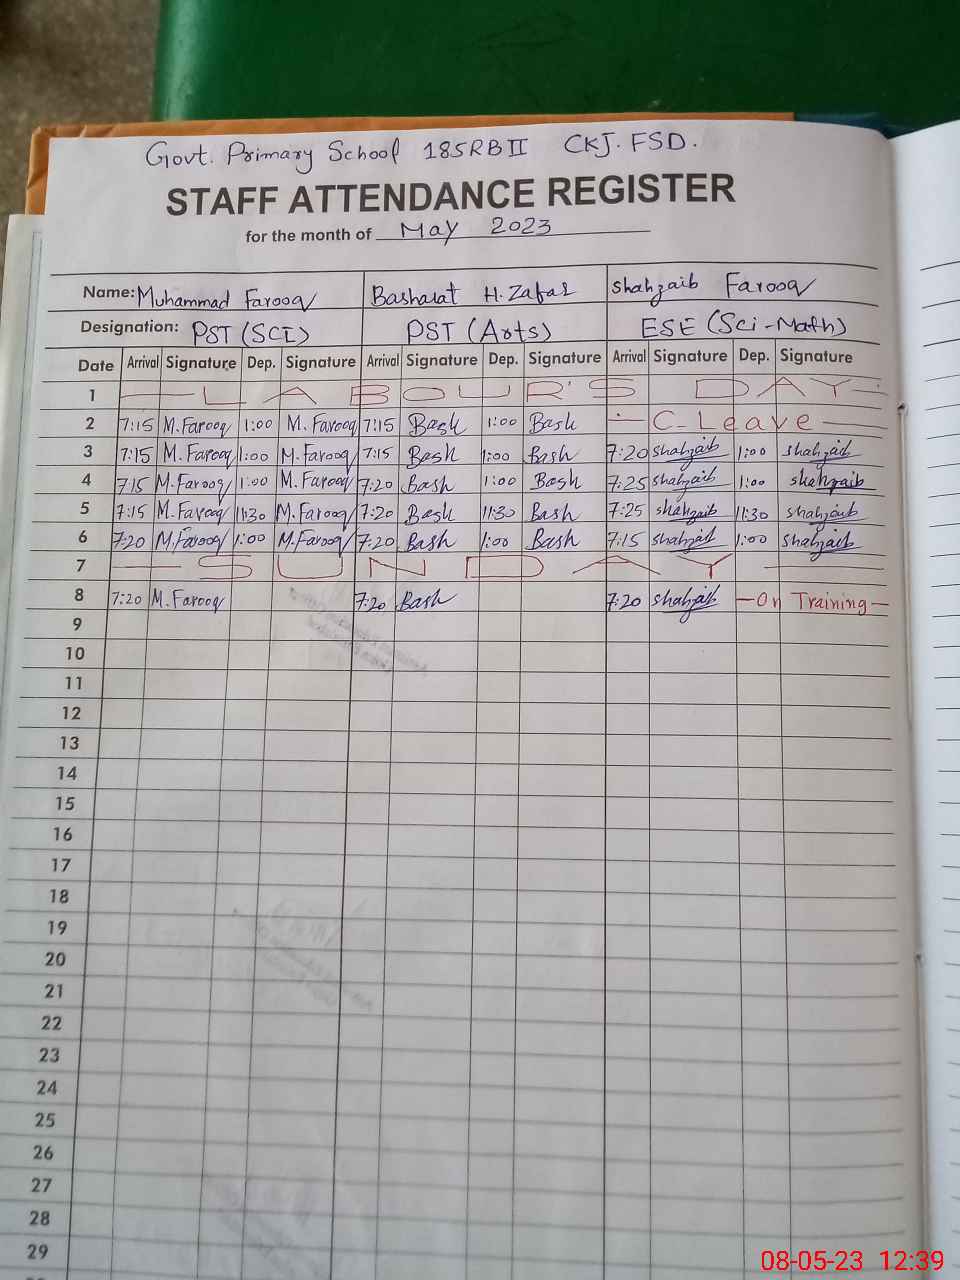 Govt. Primary School 185RB II CKJ. FSD.
STAFF ATTENDANCE REGISTER
for the month of May 2023
Name: Muhammad Farooq Basharat H. Zafar Shahzaib Farooq
Designation: PST (SCI) PST (Arts) ESE (Sci-Math)
Date Arrival Signature Dep. Signature Arrival Signature Dep. Signature Arrival Signature Dep. Signature
1 LABOUR'S DAY
2 7:15 M.Farooq 1:00 M. Farooq 7:15 Bash 1:00 Bash C. Leave
3 7:15 M. Farooq 1:00 M. Farooq 7:15 Bash 1:00 Bash 7:20 shahzaib 1:00 shahzaib
4 7:15 M. Farooq 1:00 M. Farooq 7:20 Bash 1:00 Bash 7:25 shahzaib 1:00 shahzaib
5 7:15 M. Farooq 11:30 M. Farooq 7:20 Bash 11:30 Bash 7:25 shahzaib 11:30 shahzaib
6 7:20 M.Farooq 1:00 M.Farooq 7:20 Bash 1:00 Bash 7:15 shahzaib 1:00 shahzaib
7 SUNDAY
8 7:20 M. Farooq 7:20 Bash 7:20 shahzaib — On Training —
9
10
11
12
13
14
15
16
17
18
19
20
21
22
23
24
25
26
27
28
29
08-05-23 12:39